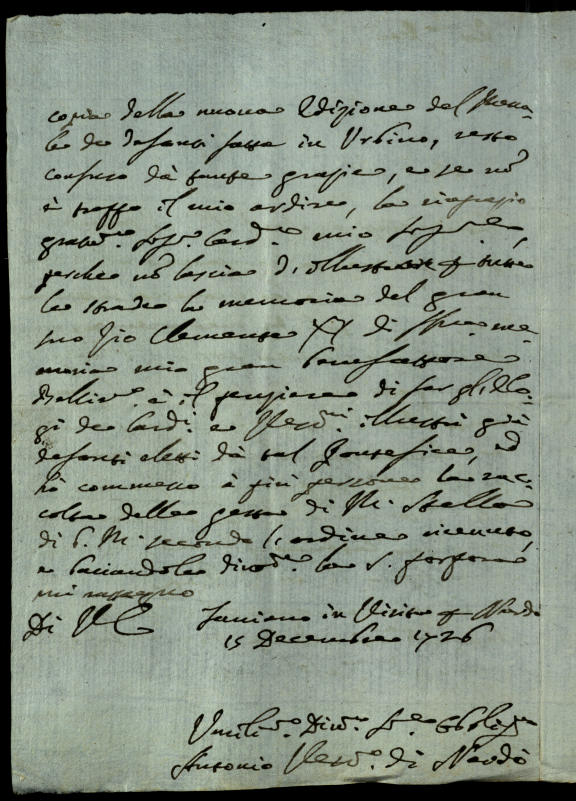 copia della nuova Edizione del
le de defonti fatta in Urbino, resto
confuso da tante grazie, e se nō
è troppo il mio ardire, la ringrazio
mio
perche nō lascia d'illustrare p tutte
le strade la memoria del gran
suo Zio Clemente XI di me=
moria mio gran benefattore
è il pensiere di far gl'Elo=
gi de Card. e Vescˡ illustri già
defonti eletti da tal Pontefice, ed
hò commesso à più persone la rac=
colta delle gesta di M. Stella
di b. M. secondo l'ordine ricevuto,
e baciandole la S. porpora
mi rassegno
Di V E in Visita p Nardò
15 Decembre 1726
Umilᵒ. Divᵒ. Sᵉ Obligᵒ
Antonio Vescᵒ. di Nardò